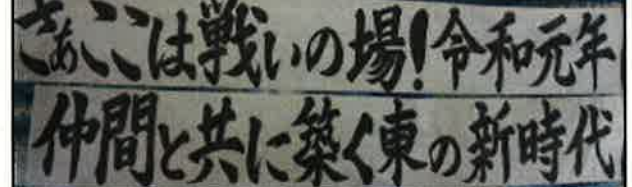 さぁここは戦いの場!令和元年
仲間と共に築く東の新時代